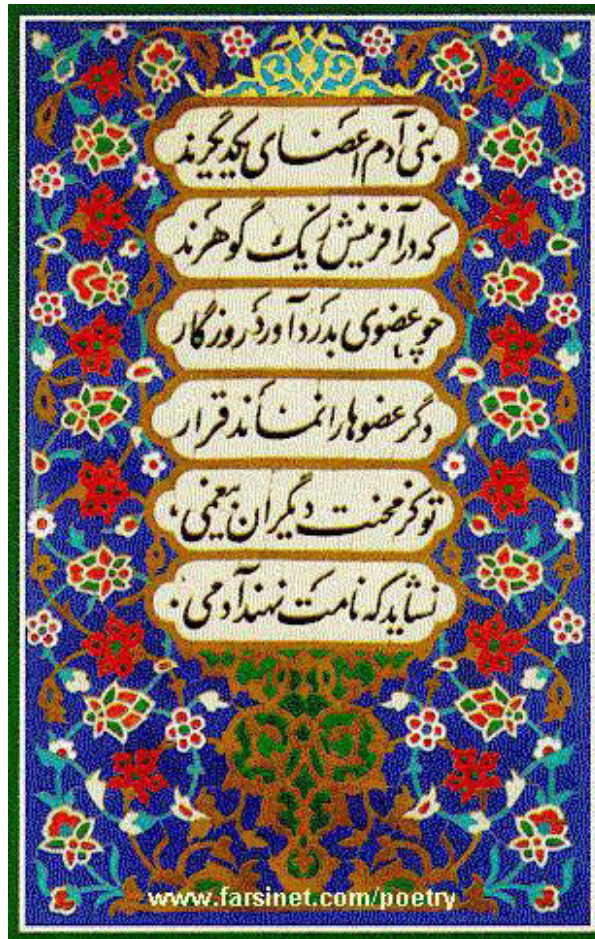 بنی آدم اعضای یکدیگرند
که در آفرینش ز یک گوهرند
چو عضوی بدرد آورد روزگار
دگر عضوها را نماند قرار
تو کز محنت دیگران بیغمی،
نشاید که نامت نهند آدمی.
www.farsinet.com/poetry